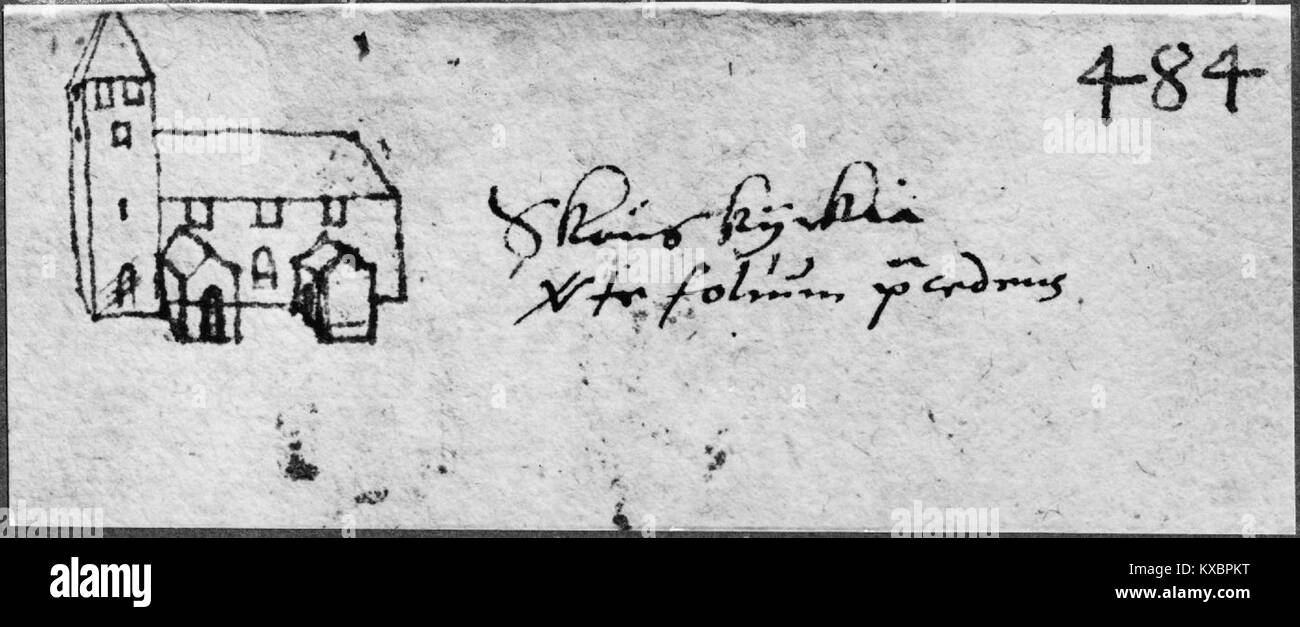 484
Sköus kÿrkia
folium p̄cedens
alamy
Image ID: KXBPKT
www.alamy.com